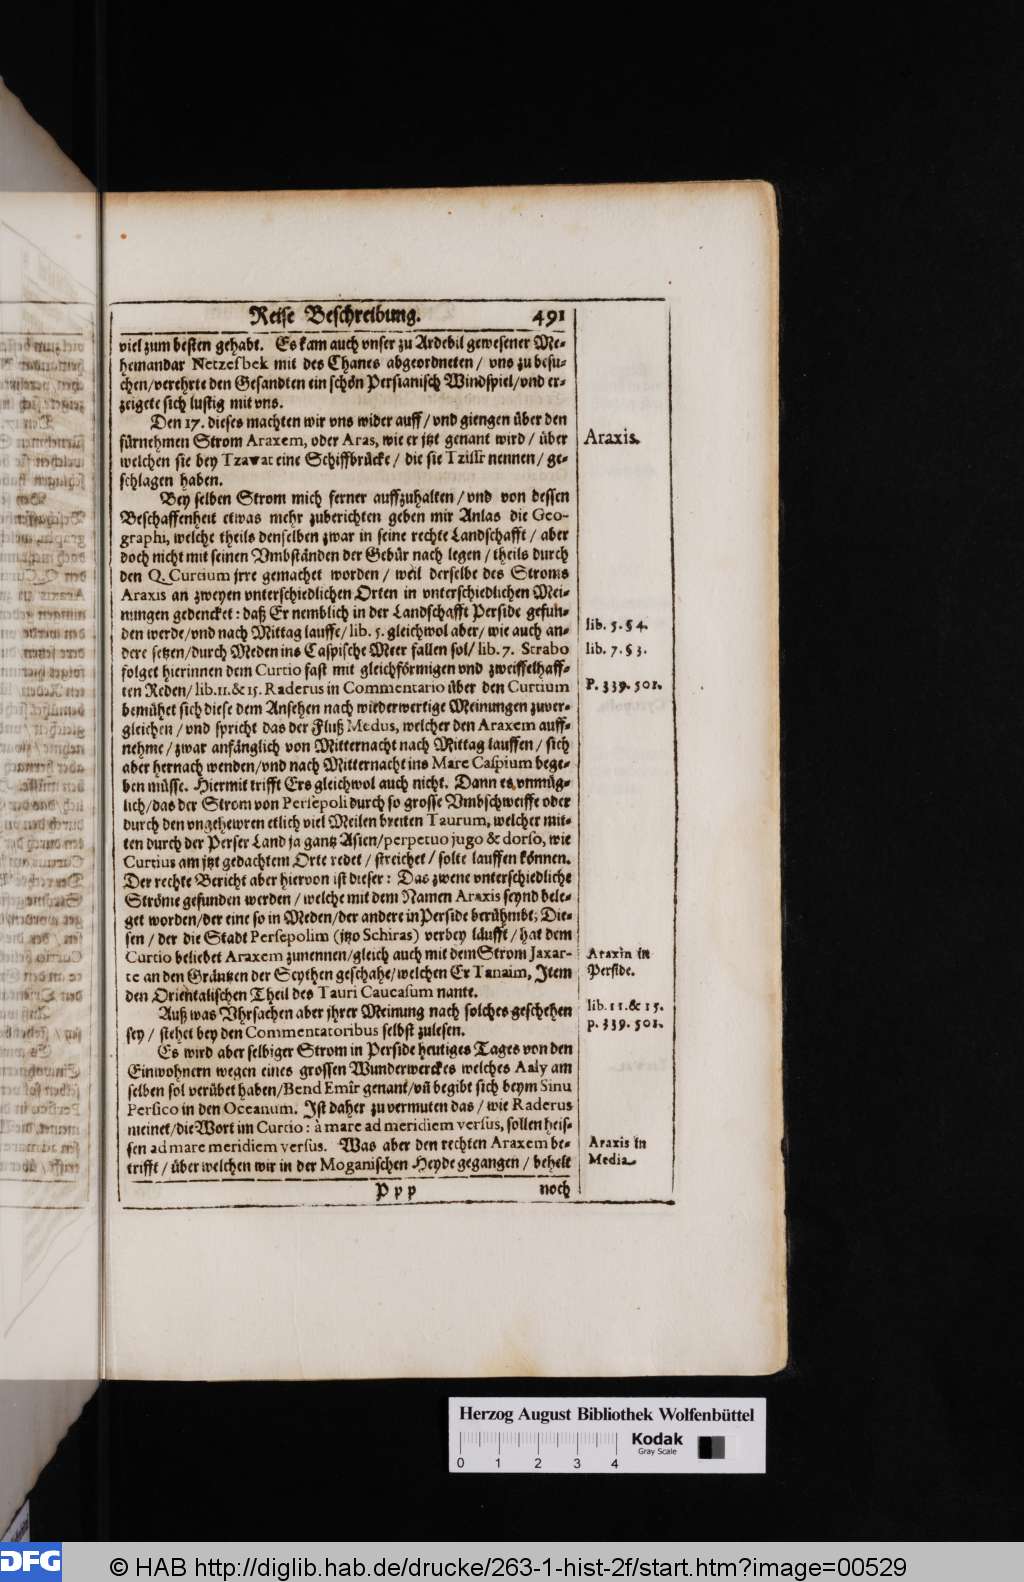 Reise Beschreibung. 491
viel zum besten gehabt. Es kam auch vnser zu Ardebil gewesener Me-
hemandar Netzefbek mit des Chanes abgeordneten / vns zu besu-
chen/verehrte den Gesandten ein schön Persianisch Windspiel/vnd er-
zeigete sich lustig mit vns.
Den 17. dieses machten wir vns wider auff / vnd giengen über den
fürnehmen Strom Araxem, oder Aras, wie er jtzt genant wird / über
Araxis.
welchen sie bey Tzawat eine Schiffbrücke / die sie Tzissr nennen / ge-
schlagen haben.
Bey selben Strom mich ferner auffzuhalten / vnd von dessen
Beschaffenheit etwas mehr zuberichten geben mir Anlas die Geo-
graphi, welche theils denselben zwar in seine rechte Landschafft / aber
doch nicht mit seinen Vmbständen der Gebür nach legen / theils durch
den Q. Curtium jrre gemachet worden / weil derselbe des Stroms
Araxis an zweyen vnterschiedlichen Orten in vnterschiedlichen Mei-
nungen gedencket: daß Er nemblich in der Landschafft Perside gefun-
den werde/vnd nach Mittag lauffe/ lib. 5. gleichwol aber/ wie auch an-
lib. 5. § 4.
dere setzen/durch Meden ins Caspische Meer fallen sol/ lib. 7. Strabo
lib. 7. § 3.
folget hierinnen dem Curtio fast mit gleichförmigen vnd zweiffelhaff-
ten Reden/ lib. 11. & 15. Raderus in Commentario über den Curtium
P. 339. 501.
bemühet sich diese dem Ansehen nach wiederwertige Meinungen zuver-
gleichen / vnd spricht das der Fluß Medus, welcher den Araxem auff-
nehme / zwar anfänglich von Mitternacht nach Mittag lauffen / sich
aber hernach wenden/vnd nach Mitternacht ins Mare Caspium bege-
ben müsse. Hiermit trifft Ers gleichwol auch nicht. Dann es vnmüg-
lich/das der Strom von Persepoli durch so grosse Vmbschweiffe oder
durch den vngehewren etlich viel Meilen breiten Taurum, welcher mit-
ten durch der Perser Land ja gantz Asien/perpetuo jugo & dorso, wie
Curtius am jtzt gedachtem Orte redet / streichet / solte lauffen können.
Der rechte Bericht aber hiervon ist dieser: Das zwene vnterschiedliche
Ströme gefunden werden / welche mit dem Namen Araxis seynd bele-
get worden/der eine so in Meden/der andere in Perside berühmbt; Die-
sen / der die Stadt Persepolim (jtzo Schiras) verbey läufft / hat dem
Curtio beliebet Araxem zunennen/gleich auch mit dem Strom Jaxar-
Araxin in
te an den Gräntzen der Scythen geschahe/welchen Er Tanaim, Item
Perside.
den Orientalischen Theil des Tauri Caucasum nante.
Auß was Vhrsachen aber jhrer Meinung nach solches geschehen
lib. 11. & 15.
sey / stehet bey den Commentatoribus selbst zulesen.
p. 339. 501.
Es wird aber selbiger Strom in Perside heutiges Tages von den
Einwohnern wegen eines grossen Wunderwerckes welches Aaly am
selben sol verübet haben/Bend Emir genant/vñ begibt sich beym Sinu
Persico in den Oceanum. Ist daher zu vermuten das / wie Raderus
meinet/die Wort im Curtio: à mare ad meridiem versus, sollen heis-
sen ad mare meridiem versus. Was aber den rechten Araxem be-
Araxis in
trifft / über welchen wir in der Moganischen Heyde gegangen / behelt
Media.
P p p noch
Herzog August Bibliothek Wolfenbüttel
Kodak
Gray Scale
0 1 2 3 4
DFG
© HAB http://diglib.hab.de/drucke/263-1-hist-2f/start.htm?image=00529